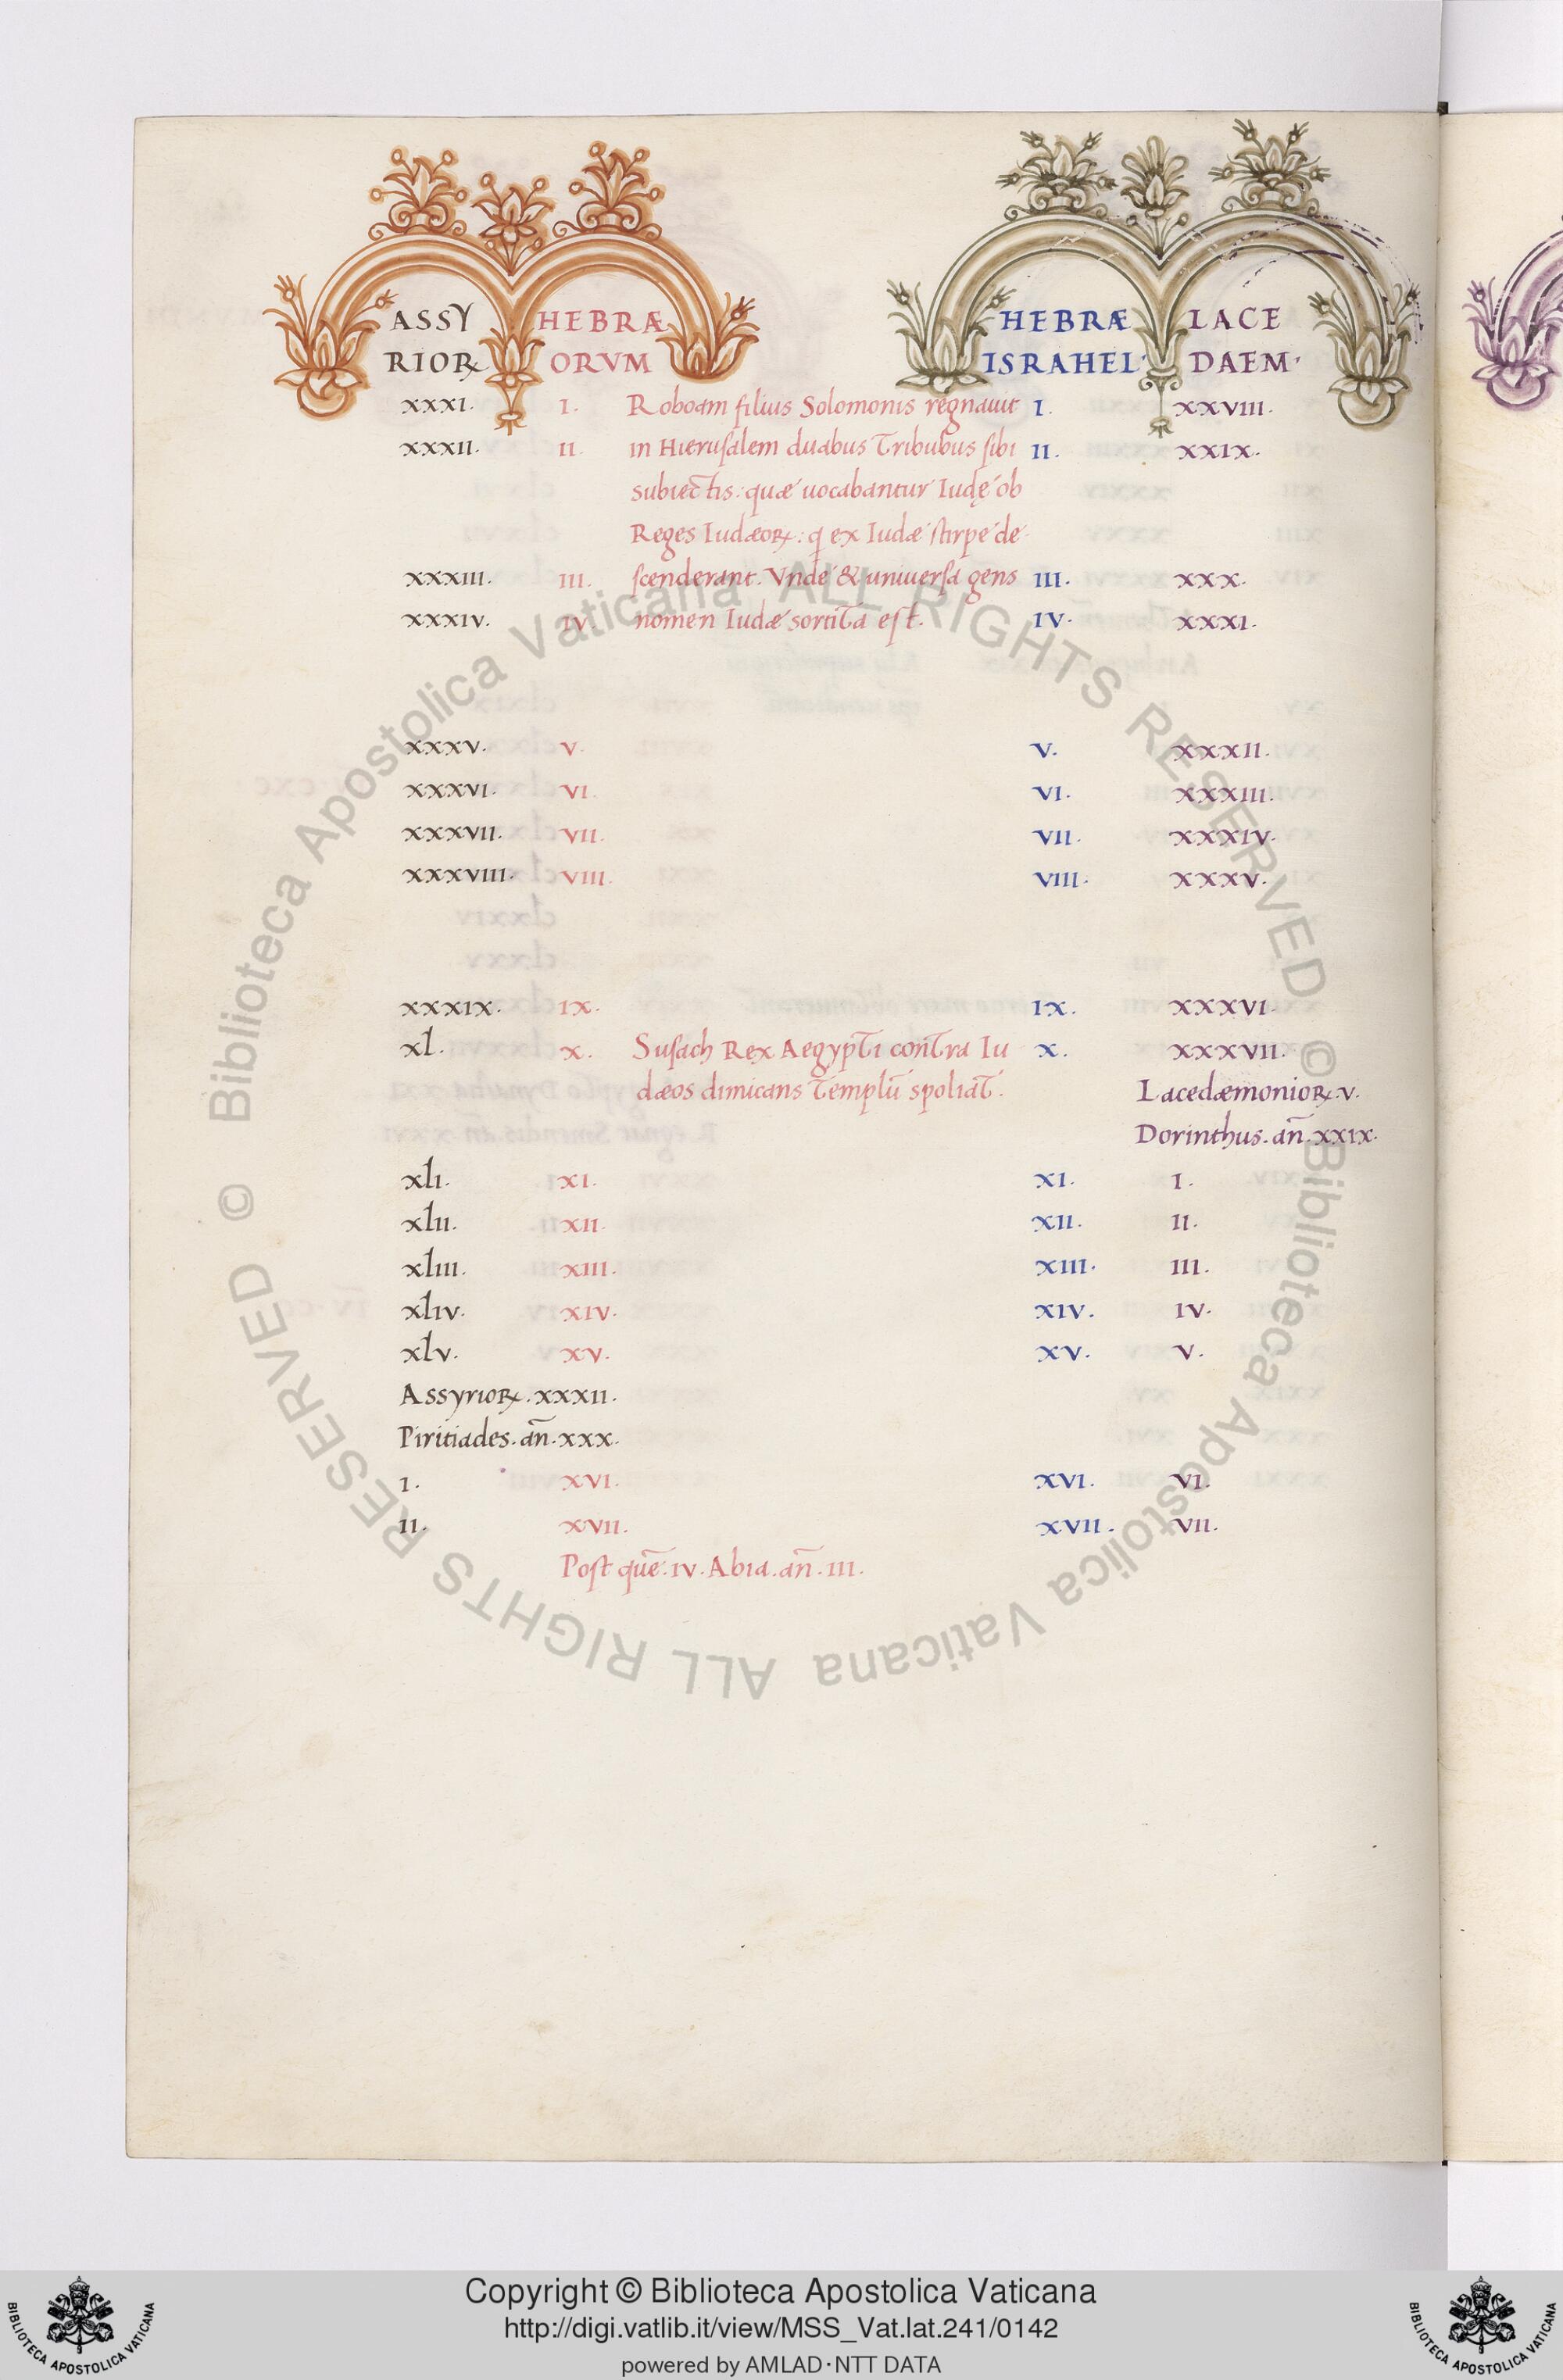 ASSY HEBRÆ HEBRÆ LACE
RIOꝜ ORVM ISRAHEL· DAEM·
XXXI. I. Roboam filius Solomonis regnauit I. XXVIII.
XXXII. II. in Hieruſalem duabus Tribubus ſibi II. XXIX.
subiectis: quæ uocabantur Iudę ob
Reges Iudæoꝝ: q̇ ex Iudæ ſtirpe de
XXXIII. III. ſcenderant. Vnde & uniuerſa gens III. XXX.
XXXIV. IV. nomen Iudæ sortita eſt. IV. XXXI.
XXXV. V. V. XXXII.
XXXVI. VI. VI. XXXIII.
XXXVII. VII. VII. XXXIV.
XXXVIII. VIII. VIII. XXXV.
XXXIX. IX. IX. XXXVI.
xl. X. Suſach Rex Aegypti contra Iu X. XXXVII.
dæos dimicans templū spoliat. Lacedæmonioꝝ. V.
Dorinthus. an̄. XXIX.
xlI. XI. XI. I.
xlII. XII. XII. II.
xlIII. XIII. XIII. III.
xlIV. XIV. XIV. IV.
xlV. XV. XV. V.
Assyrioꝝ. XXXII.
Piritiades. an̄. XXX.
I. XVI. XVI. VI.
II. XVII. XVII. VII.
Poſt quē. IV. Abia. an̄. III.
© Biblioteca Apostolica Vaticana ALL RIGHTS RESERVED © Biblioteca Apostolica Vaticana ALL RIGHTS RESERVED
Copyright © Biblioteca Apostolica Vaticana
http://digi.vatlib.it/view/MSS_Vat.lat.241/0142
powered by AMLAD·NTT DATA
BIBLIOTECA APOSTOLICA VATICANA
BIBLIOTECA APOSTOLICA VATICANA